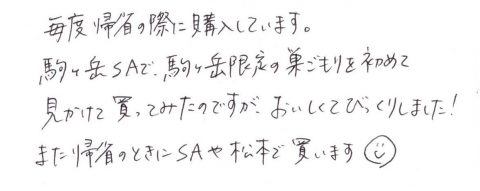 毎度帰省の際に購入しています。
駒ヶ岳SAで、駒ヶ岳限定の巣ごもりを初めて
見かけて買ってみたのですが、おいしくてびっくりしました!
また帰省のときにSAや松本で買います